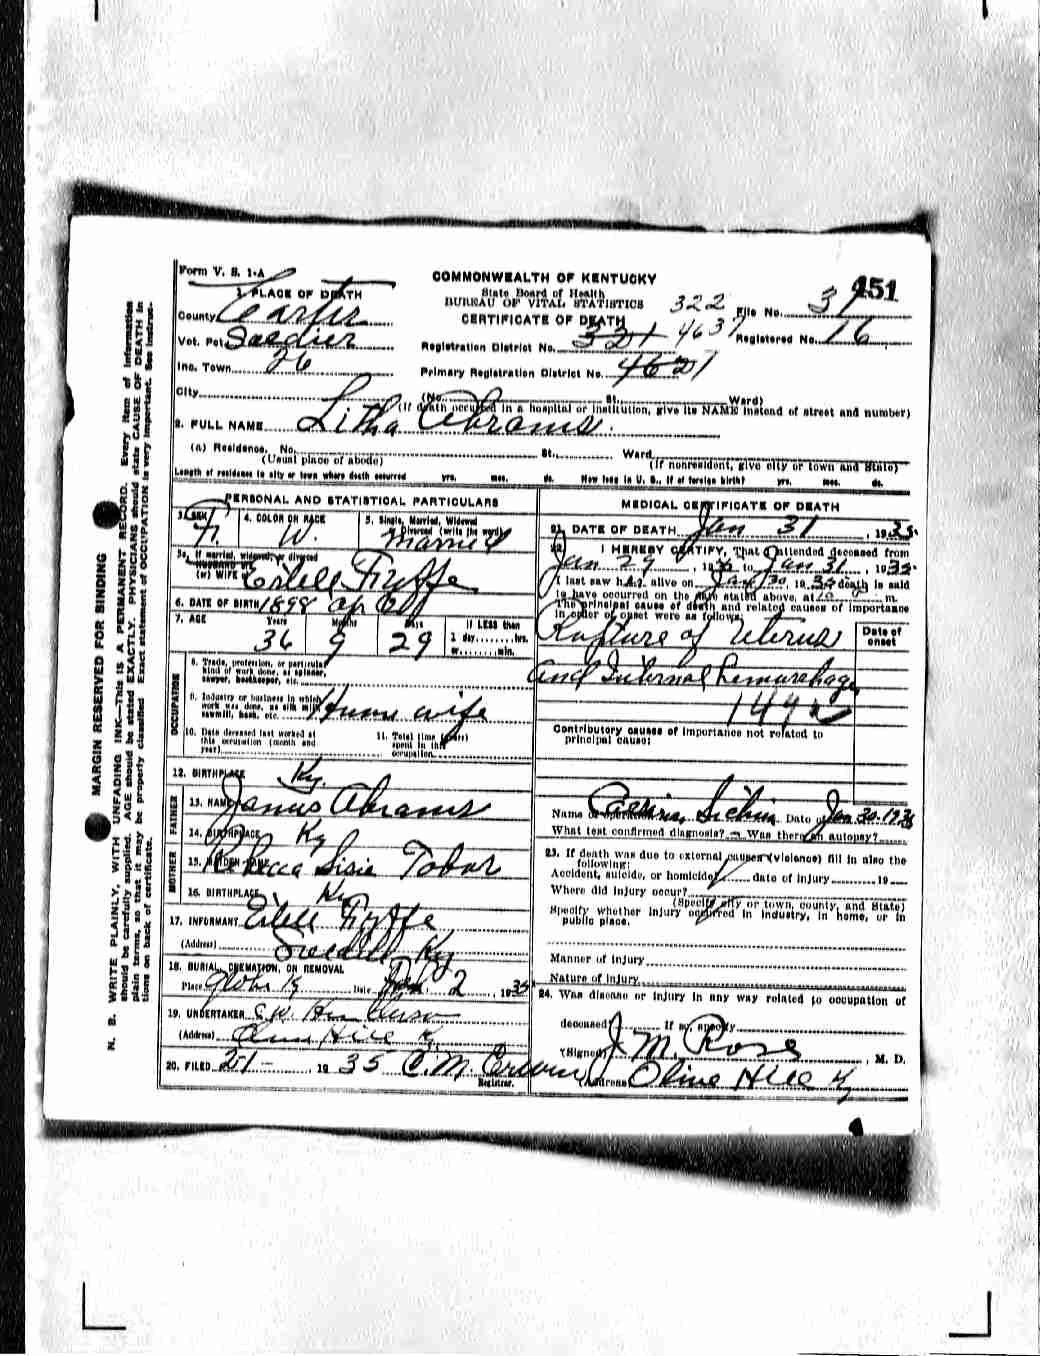 Form V. S. 1-A
COMMONWEALTH OF KENTUCKY
State Board of Health
BUREAU OF VITAL STATISTICS
CERTIFICATE OF DEATH
451
1. PLACE OF DEATH
County Carter
Vot. Pct. Soldier
Inc. Town 26
City
322
File No. 37
Registration District No. 321 4637
Registered No. 16
Primary Registration District No. 4621
(No. St. Ward)
(If death occurred in a hospital or institution, give its NAME instead of street and number)
2. FULL NAME Litha Abrams.
(a) Residence, No. St., Ward
(Usual place of abode) (If nonresident, give city or town and State)
Length of residence in city or town where death occurred yrs. mos. ds. How long in U. S., if of foreign birth? yrs. mos. ds.
PERSONAL AND STATISTICAL PARTICULARS
3. SEX F. 4. COLOR OR RACE W. 5. Single, Married, Widowed
Divorced (write the word) Married
5a. If married, widowed, or divorced
HUSBAND OF
(or) WIFE
6. DATE OF BIRTH 1898 Ap
7. AGE Years Months Days If LESS than
36 9 29 1 day,........hrs.
or........min.
OCCUPATION
8. Trade, profession, or particular
kind of work done, as spinner,
sawyer, bookkeeper, etc.
9. Industry or business in which
work was done, as silk mill,
sawmill, bank, etc. House wife
10. Date deceased last worked at
this occupation (month and
year)
11. Total time (years)
spent in this
occupation
12. BIRTHPLACE Ky.
FATHER
13. NAME James Abrams
14. BIRTHPLACE Ky
MOTHER
15. MAIDEN NAME Rebecca Tabor
16. BIRTHPLACE Ky
17. INFORMANT
(Address) Ky
18. BURIAL, CREMATION, OR REMOVAL
Place Globe Ky Date 2, 1935
19. UNDERTAKER
(Address) Olive Hill K.
20. FILED 2-1-, 1935 C. M. Erwin
Registrar.
MEDICAL CERTIFICATE OF DEATH
21. DATE OF DEATH Jan 31, 1935.
22. I HEREBY CERTIFY, That I attended deceased from
Jan 29, 1935 to Jan 31, 1935.
I last saw h alive on Jan 30, 1935 death is said
to have occurred on the date stated above, at m.
The principal cause of death and related causes of importance
in order of onset were as follows:
Date of
onset
Rupture of Uterus
and Internal hemorrhage
149
Contributory causes of importance not related to
principal cause:
Name of operation Date of Jan 30. 1935
What test confirmed diagnosis? Was there an autopsy?
23. If death was due to external causes (violence) fill in also the
following:
Accident, suicide, or homicide? date of injury 19
Where did injury occur?
(Specify city or town, county, and State)
Specify whether injury occurred in industry, in home, or in
public place.
Manner of injury
Nature of injury
24. Was disease or injury in any way related to occupation of
deceased? If so, specify
(Signed) J. M. Rose, M. D.
Address Olive Hill Ky
MARGIN RESERVED FOR BINDING
N. B. WRITE PLAINLY, WITH UNFADING INK—This IS A PERMANENT RECORD. Every item of information
should be carefully supplied. AGE should be stated EXACTLY. PHYSICIANS should state CAUSE OF DEATH in
plain terms, so that it may be properly classified. Exact statement of OCCUPATION is very important. See instruc-
tions on back of certificate.